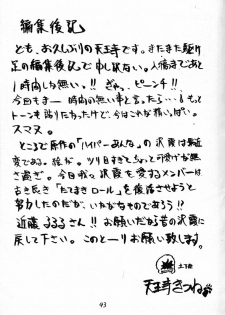 編集後記
ども、お久しぶりの天王寺です。またまた駆け
足の編集後記で申し訳ない。入稿まであと
1時間しか無い!!ぎゃっ、ピーンチ!!
今回もまー時間の無い事と言ったら…もっと
トーンも貼りたかったけど、今はこれが精いっぱい。
スマヌ。
ところで原作の「ハイパーあんな」の沢霞は最近
変である。絵が。ツリ目すぎてちょっと可愛げが無
さ過ぎ。今日我ら沢霞を愛するメンバーは
古き良き「たてまきロール」を復活させようと
努力したのだが、いかがなものであろう!?
近藤るるるさん!!お願いだから昔の沢霞に
戻して下さい。このとーりお願い致します。
土下座
天王寺きつね
93